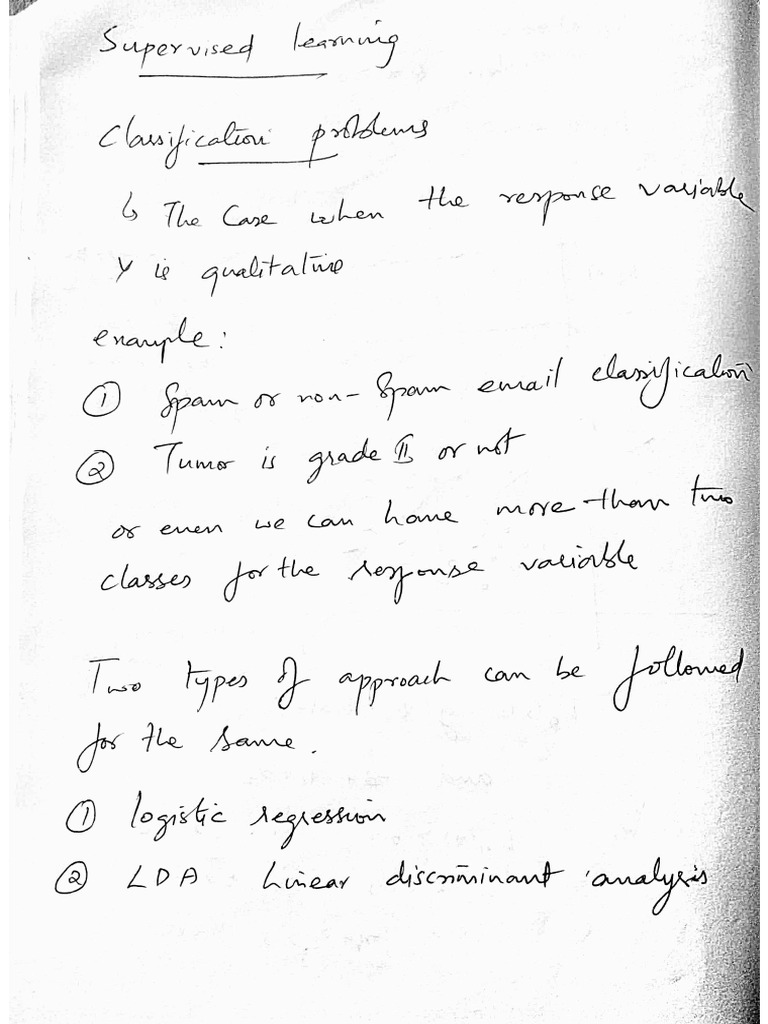 Supervised learning
Classification problems
↳ The Case when the response variable
Y is qualitative
example:
① Spam or non-Spam email classification
② Tumor is grade II or not
or even we can have more than two
classes for the response variable
Two types of approach can be followed
for the same.
① logistic regression
② LDA Linear discriminant analysis